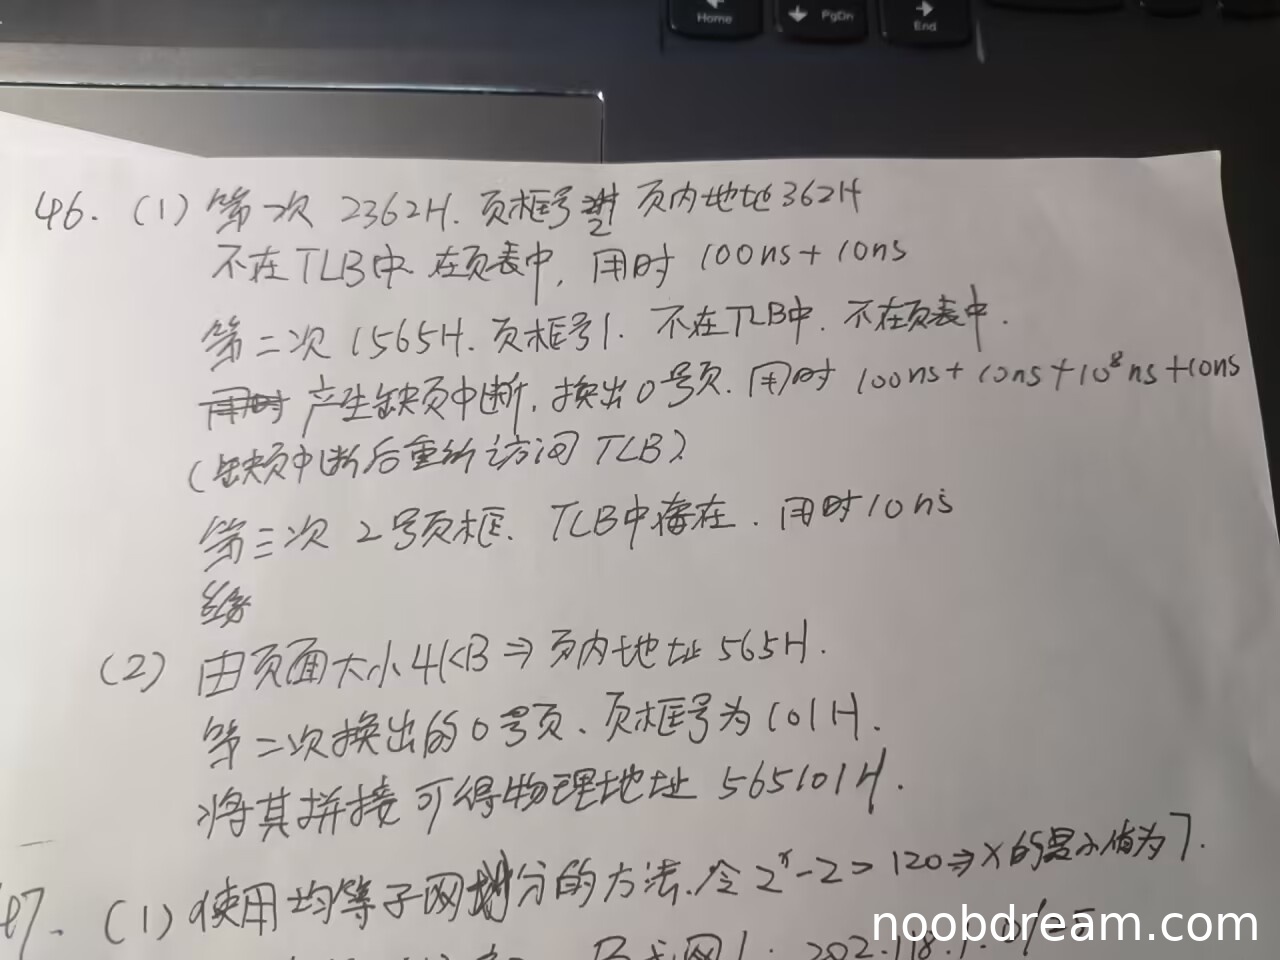 Home
PgDn
End
46. (1) 第一次 2362H. 页框号 2 页内地址362H
不在TLB中. 在页表中, 用时 100ns + 10ns
第二次 1565H. 页框号1. 不在TLB中. 不在页表中.
用时 产生缺页中断. 换出0号页. 用时 100ns + 10ns + 10⁸ns + 10ns
(缺页中断后重新访问 TLB)
第三次 2号页框. TLB中存在. 用时10ns
(2) 由页面大小4KB ⇒ 页内地址 565H.
第二次换出的0号页、页框号为101H.
将其拼接可得物理地址 565101H.
47. (1) 使用均等子网划分的方法. 令 2ˣ-2 > 120 ⇒ X的最小值为7.
noobdream.com